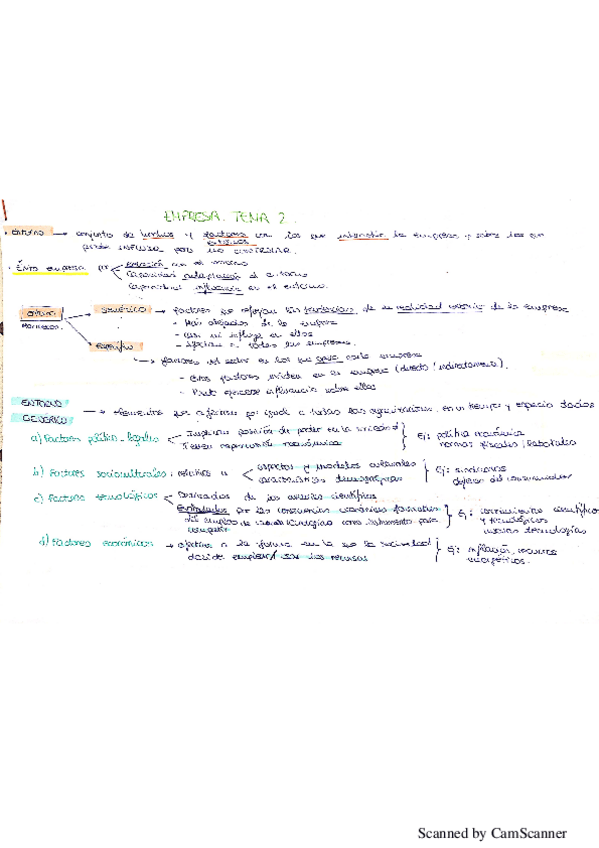 EMPRESA. TEMA 2.
· ENTORNO → conjunto de hechos y factores externos con los que interactúa la empresa y sobre los que
puede INFLUIR pero NO CONTROLAR.
· Éxito empresa pr relación con el entorno
capacidad adaptación al entorno
capacidad influencia en el entorno.
GENÉRICO → factores que reflejan las de la realidad exterior de la empresa
- Más alejados de la empresa
- casi no influye en ellos
- Afectan a todas las empresas.
→ factores del sector en los que opera cada empresa
- Estos factores inciden en la empresa (directa / indirectamente).
- Puede ejercerse influencia sobre ellos
ENTORNO
GENÉRICO → elementos que afectan por igual a todas las organizaciones, en un tiempo y espacio dados
a) Factores político-legales posición de poder en la sociedad
Tienen repercusión económica
Ej: política económica
normas fiscales / laborales
b) Factores socioculturales: relativos a aspectos y modelos culturales
características demográficas
Ej: sindicatos
defensa del consumidor
c) Factores tecnológicos Derivados de los avances científicos
por las económicas
del empleo de las tecnologías como instrumento para
competir
Ej: conocimientos científicos
y tecnológicos
nuevas tecnologías
d) Factores económicos → afectan a la forma en la que la sociedad
decide emplear / usar los recursos
Ej: inflación, recursos
energéticos.
Scanned by CamScanner